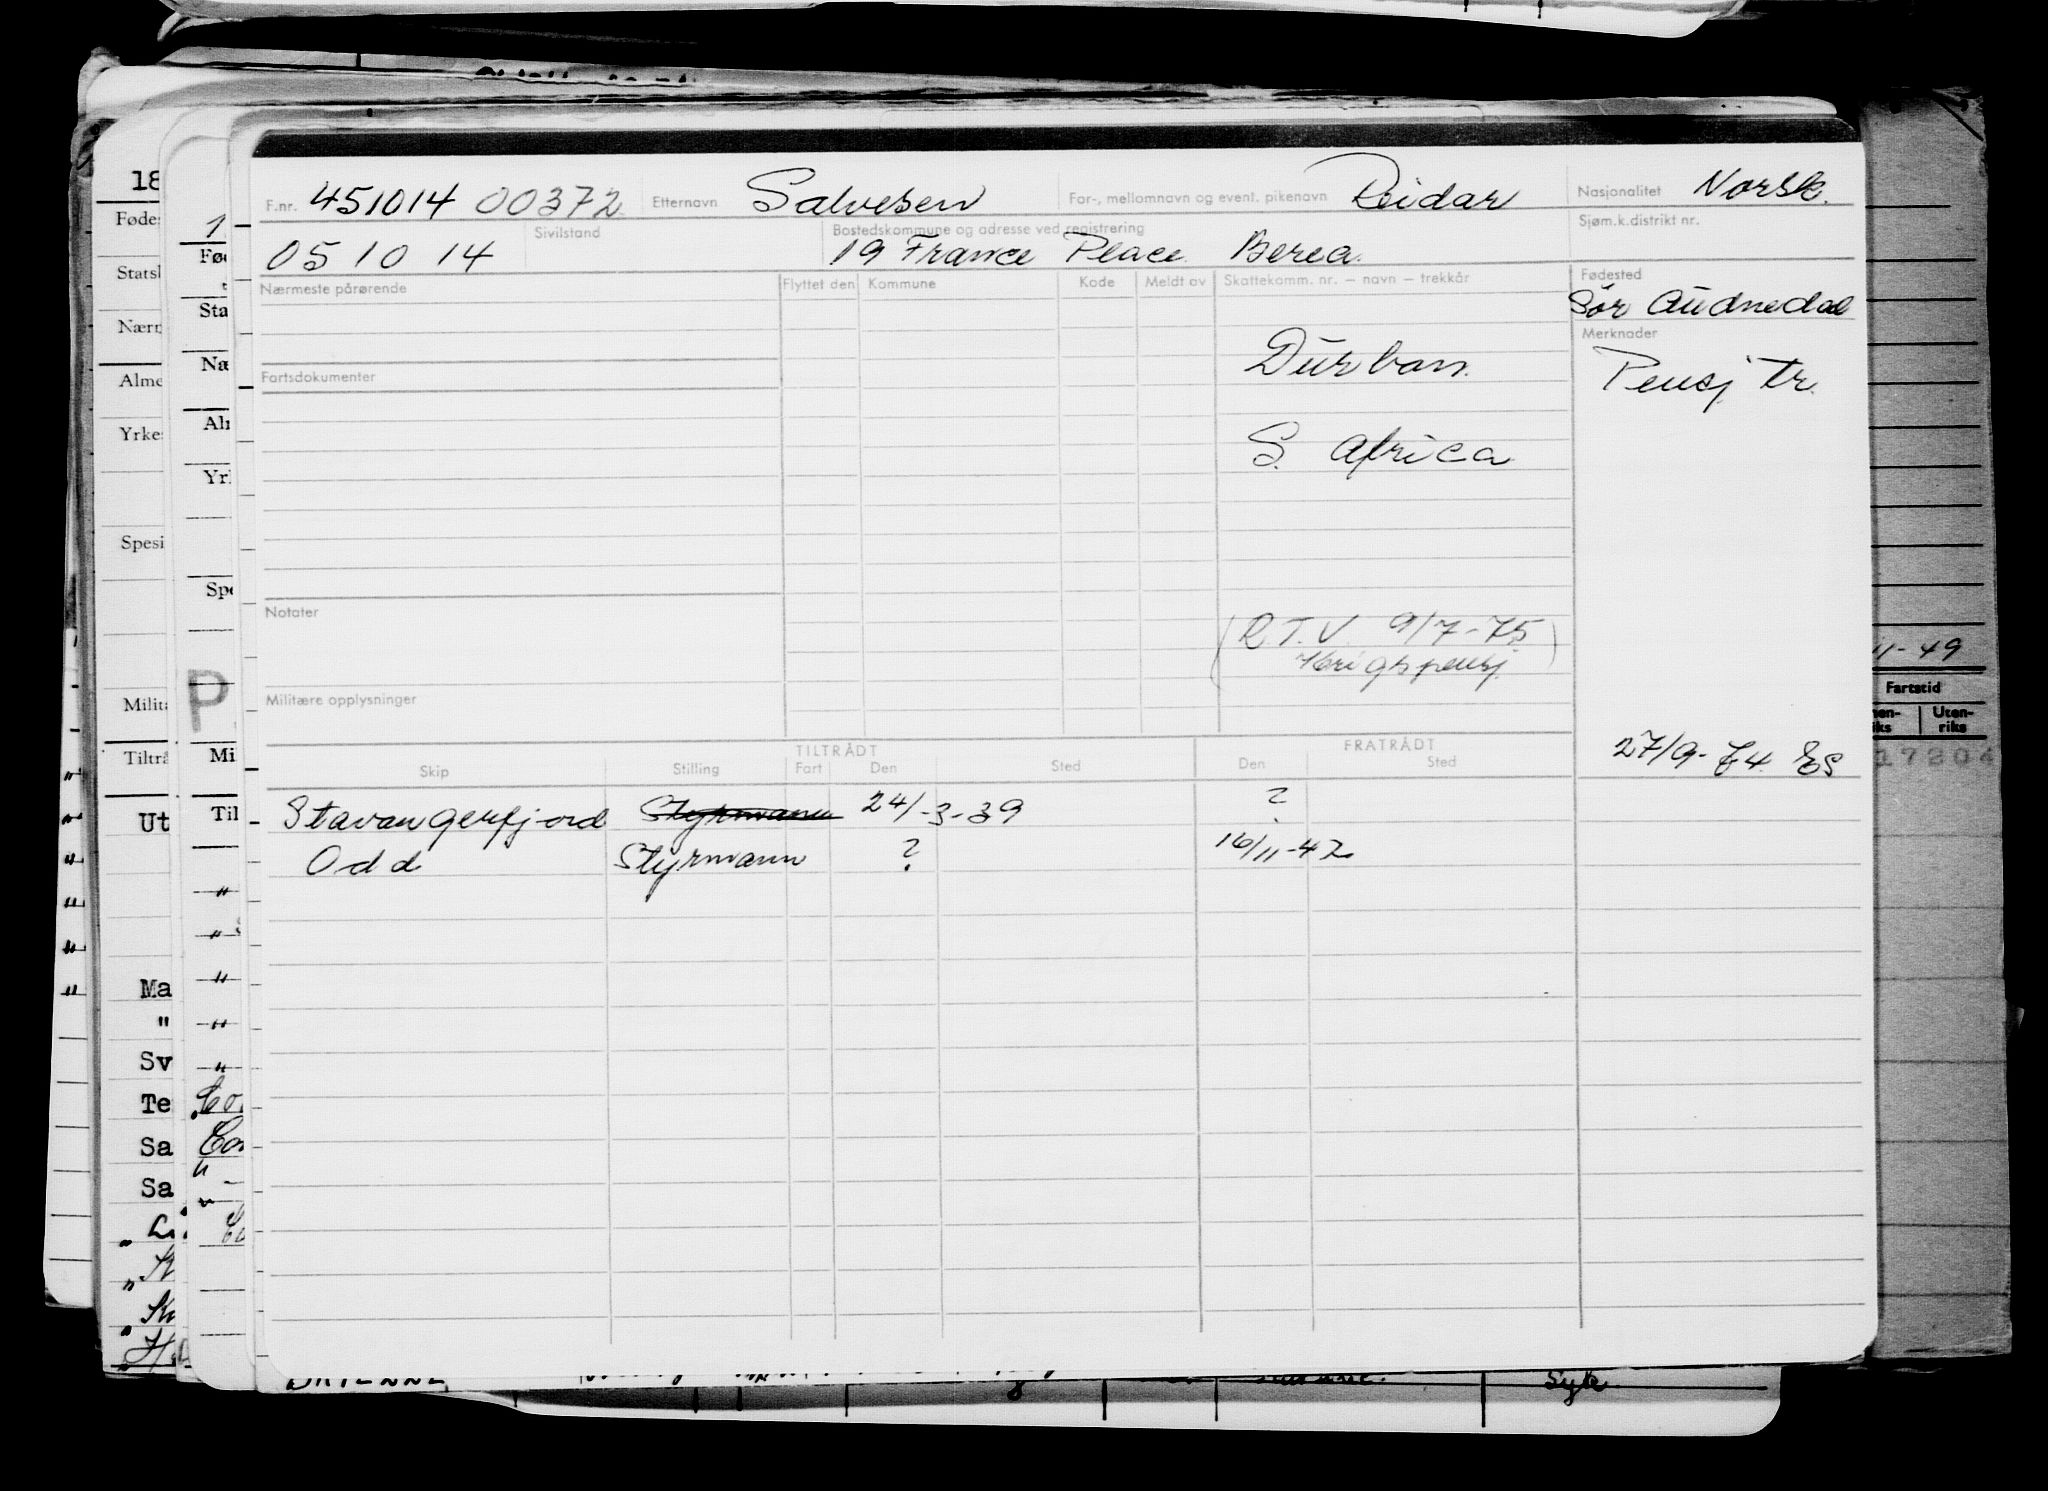 F.nr. 451014 00372 Etternavn Salvesen For-, mellomnavn og event. pikenavn Reidar Nasjonalitet Norsk.
05 10 14 Sivilstand Bostedskommune og adresse ved registrering 19 France Place Berea. Sjøm.k.distrikt nr.
Nærmeste pårørende Flyttet den Kommune Kode Meldt av Skattekomm. nr. — navn — trekkår Fødested
Sør Audnedal
Merknader
Durban. Pensj tr.
Fartsdokumenter
S. Africa
Notater
(R.T.V. 9/7-75
Krigspensj.)
Militære opplysninger
TILTRÅDT FRATRÅDT
Skip Stilling Fart Den Sted Den Sted
27/9-74 ES
Stavangerfjord Styrmann 24/-3-39 ?
Odd Styrmann ? 16/11-42
18
Fødes
Stats
Nærn
Alme
Yrke
Spesi
Milit
Tiltrå
Ut
Ma
"
Sv
Te
Sa
Sa
1
Fø
Sta
Næ
Al
Yr
Spe
P
Mi
Til
11-49
Fartstid
Uten-
riks
17204
Syk.